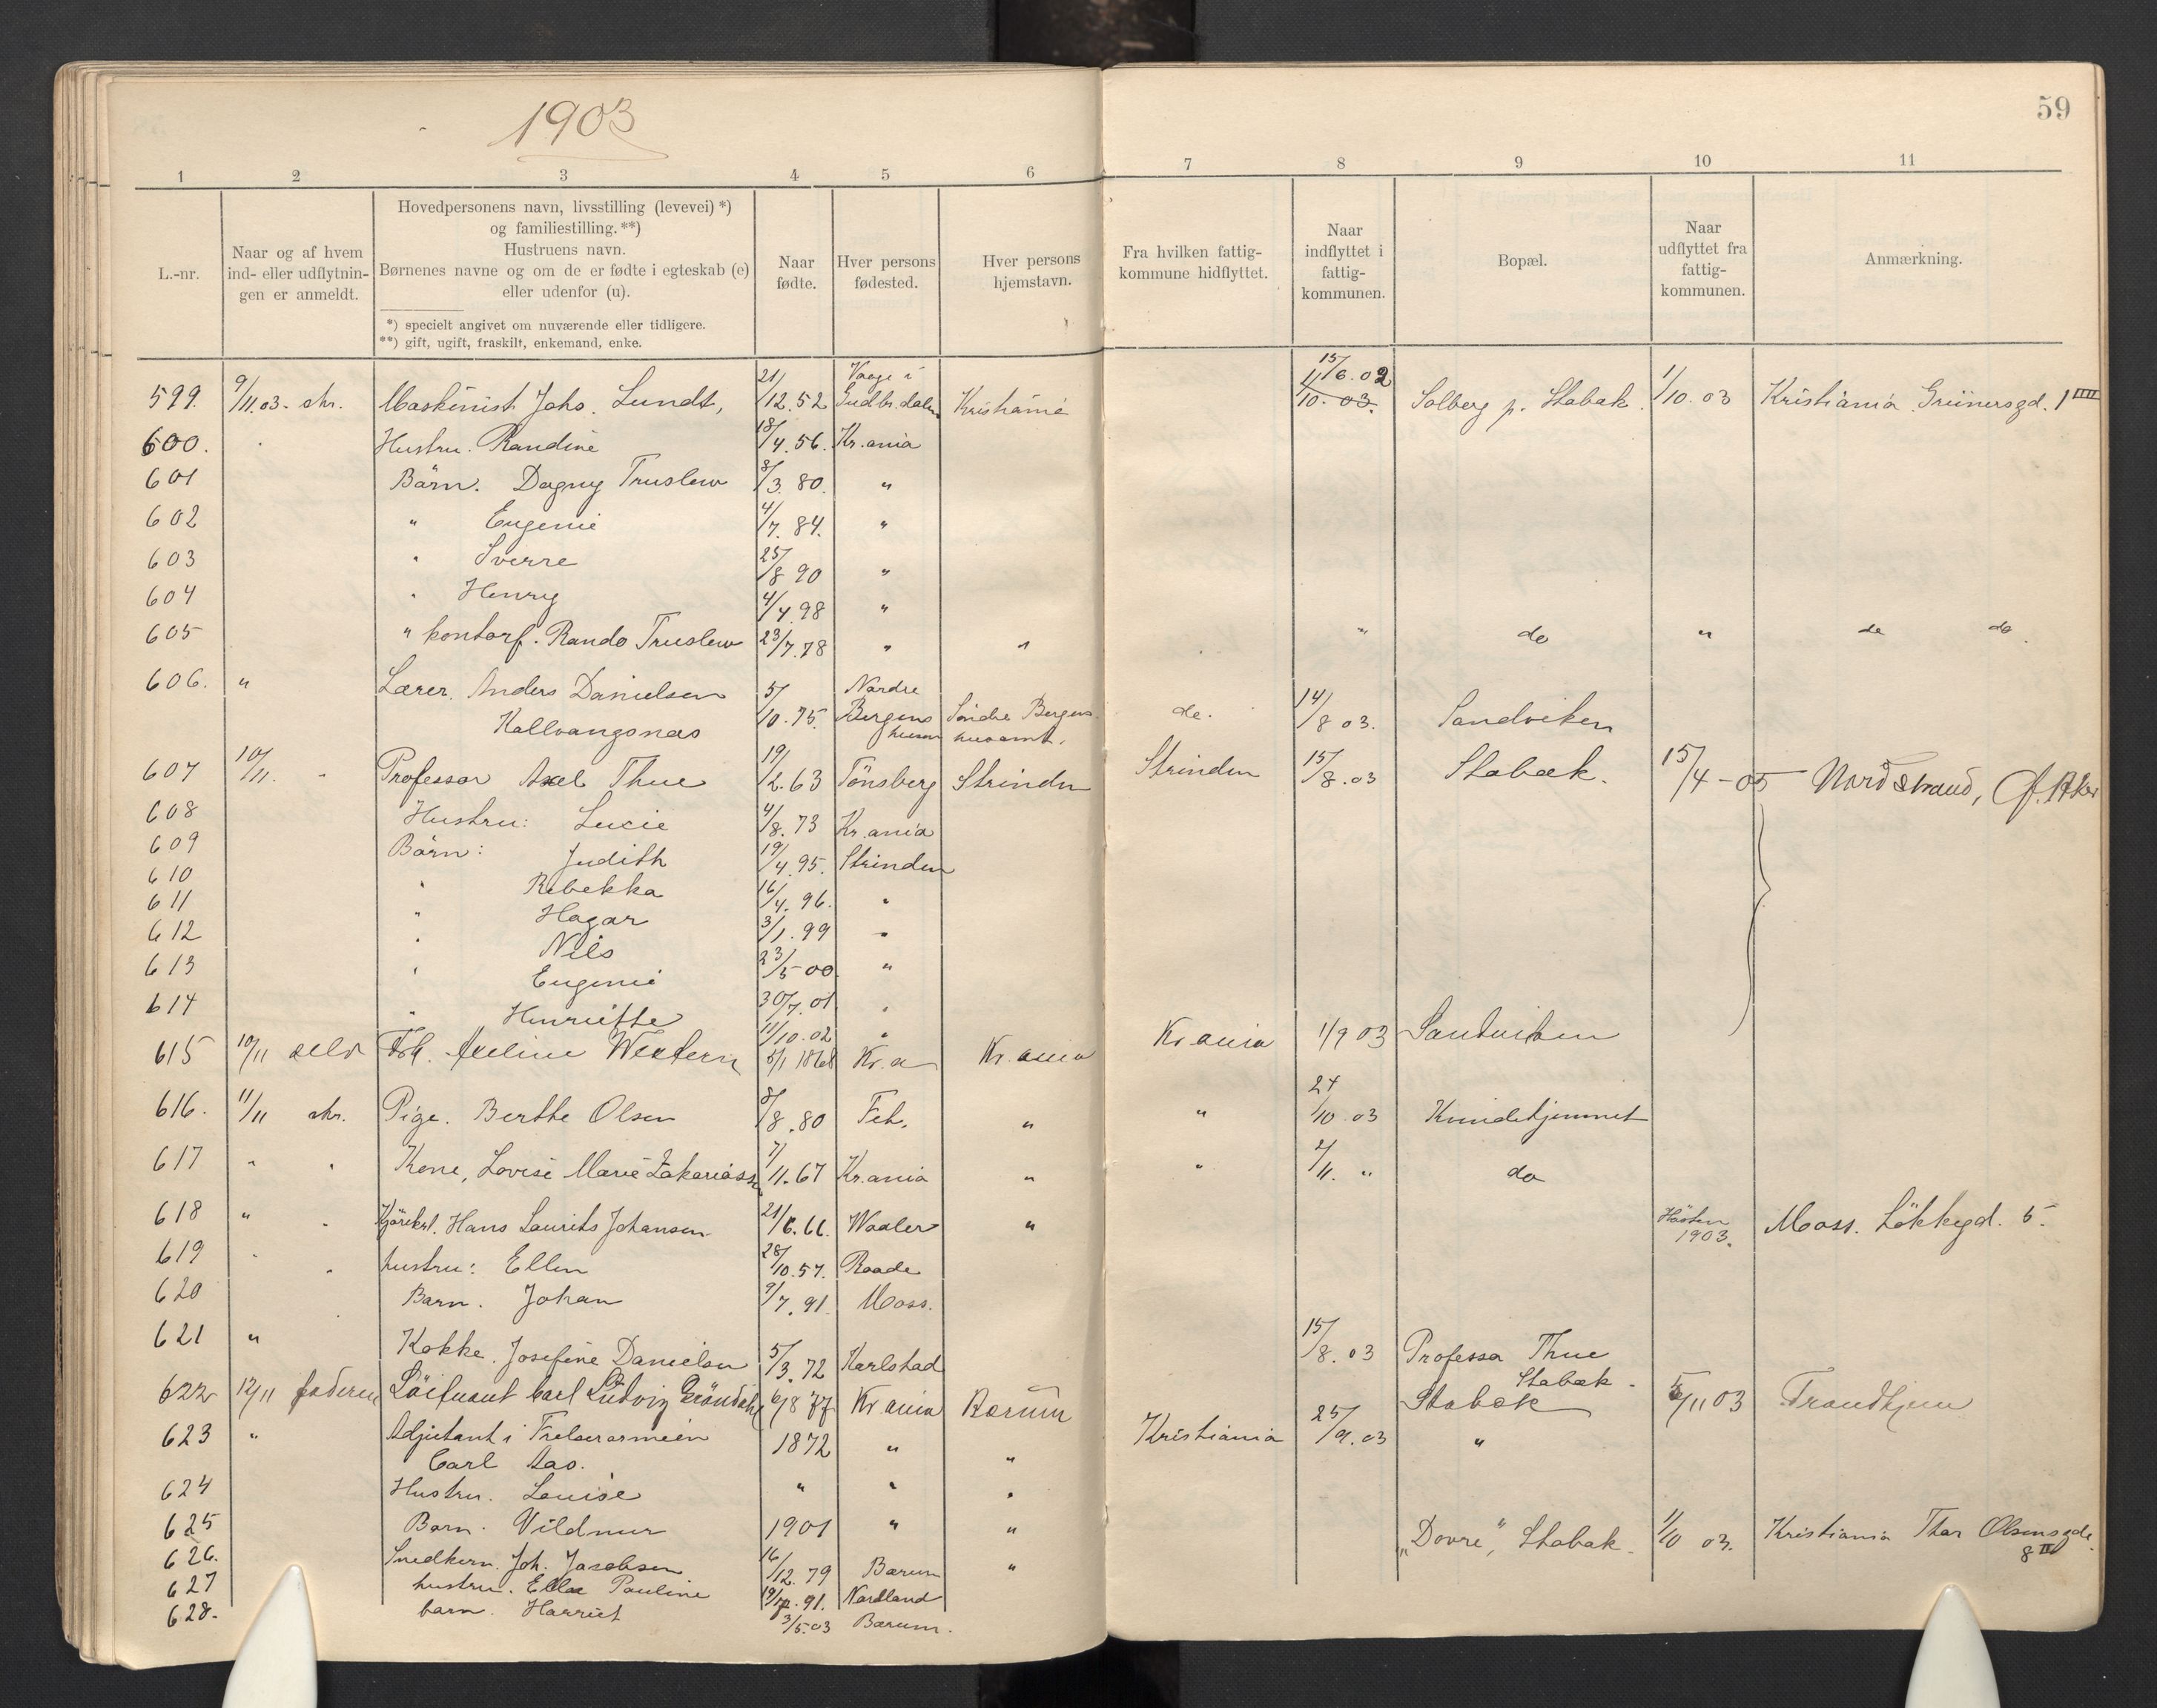 1903
59
1 2 3 4 5 6 7 8 9 10 11
L.-nr.
Naar og af hvem
ind- eller udflytnin-
gen er anmeldt.
Hovedpersonens navn, livsstilling (levevei) *)
og familiestilling. **)
Hustruens navn.
Børnenes navne og om de er fødte i egteskab (e)
eller udenfor (u).
*) specielt angivet om nuværende eller tidligere.
**) gift, ugift, fraskilt, enkemand, enke.
Naar
fødte.
Hver persons
fødested.
Hver persons
hjemstavn.
Fra hvilken fattig-
kommune hidflyttet.
Naar
indflyttet i
fattig-
kommunen.
Bopæl.
Naar
udflyttet fra
fattig-
kommunen.
Anmærkning.
599. 9/11.03. skr. Maskinist Johs. Lundt, 21/12.52 Vaage i Gudbr.dalen Kristiania 15/6.02 1/10.03. Solberg p. Stabæk. 1/10.03 Kristiania Grünersgd. 1 IIII
600. Hustru. Randine 18/4.56. Kr.ania
601 Börn. Dagny Truslew 8/3.80. "
602 " Eugenie 4/7.84. "
603 " Sverre 25/8 90 "
604 " Henry 4/4.98 "
605 " kontorf. Rando Truslew 23/7.78 " " " do " do do
606. " Lærer. Anders Danielsen 5/10.75. Nordre Bergenshusen Söndre Bergenshusamt. do. 14/8 03. Sandviken
Kallvangsnæs
607 10/11. " Professor Axel Thue 19/2.63 Tönsberg Strinden Strinden 15/8.03 Stabæk. 15/4-05 Nordstrand, Ø. Aker
608 Hustru: Lucie 4/8.73 Kr.ania
609 Börn: Judith 19/4.95. Strinden
610 " Rebekka 16/4.96. "
611 " Hagar 3/1.99 "
612 " Nils 23/5 00 "
613 " Eugenie 30/7.01 "
614 " Henriette 11/10.02 "
615 10/11 selv Frk. Aveline Western 5/1 1868 Kr.a Kr.ania Kr.ania 1/9 03 Sandviken
616. 11/11 skr. Pige. Berthe Olsen 8/8.80 Fet. " " 24/10.03 Kvindehjemmet
617 " " Kone, Lovise Marie Zakariassen 7/11.67 Kr.ania " " 2/11. " do
618 " " Kjörekrl. Hans Laurits Johansen 21/6.66. Waaler " Hösten 1903. Moss. Lökkegd. 5.
619 " " hustru: Ellen 28/10.57. Raade
620 Barn. Johan 9/7.91. Moss.
621 " Kokke. Josefine Danielsen 5/3.72 Karlstad 15/8.03 Professor Thue
Stabæk.
622 12/11 faderen Löitnant Carl Ludvig Gröndahl 6/8 77 Kr ania Bærum Stabæk 5/11 03 Trondhjem
623 " Adjutant i Frelserarmeen 1872 " " Kristiania 25/9.03 "
Carl Aas.
624 Hustru. Louise " " "
625 Barn. Vildmur 1901 " " "Dovre", Stabæk. 1/10 03. Kristiania Thor Olsensgde.
8 III
626. Snedkern. Joh. Jacobsen 16/12.79 Bærum "
627 hustru. Ella Pauline Nordland
628. barn. Harriet 3/5.03 Bærum.